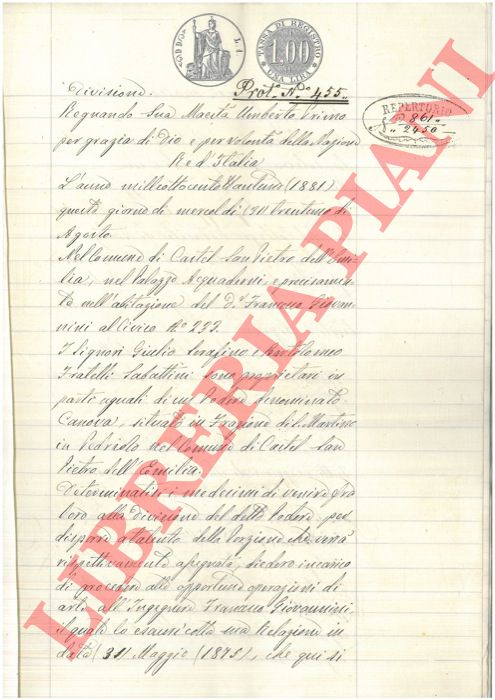 TASSA DI REGISTRO
1.00
UNA LIRA
Divisione.
Prot.º N.º 455..
REPERTORIO
861
2450
Regnando Sua Maestà Umberto Primo
per grazia di Dio e per volontà della Nazione
Re d'Italia
L'anno milleottocentottantuno (1881)
questo giorno di mercoldì (31) trentuno di
Agosto.
Nel Comune di Castel San Pietro dell'Emi-
lia, nel Palazzo Acquaderni, e precisamen-
te nell'abitazione del D.r Francesco Giovan-
nini al Civico N.º 222.
I Signori Giulio Serafino e Bartolomeo
Fratelli Sabattini sono proprietari in
parti uguali di un Podere denominato
Canova, situato in Frazione di S. Martino
in Pedriolo nel Comune di Castel San
Pietro dell'Emilia.
Determinatisi i medesimi di venire fra
loro alla divisione del detto Podere, per
disporre a talento della porzione che verrà
rispettivamente assegnata, diedero incarico
di procedere alle opportune operazioni di
arte all'Ingegnere Francesco Giovannini
il quale lo esaurì colla sua Relazione in
data (31) Maggio (1875), che qui si
LIBRERIA PIANI